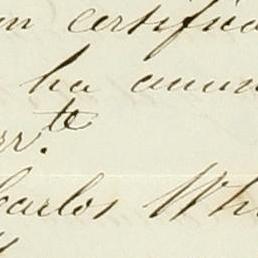 un certifica
ha anun
rr.te
Carlos Whi